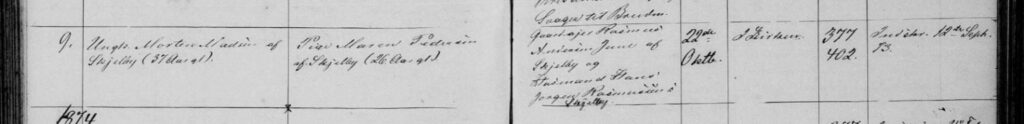 Sognet til Bruden.
9. Ungk. Morten Madsen af
Skjelby (37 Aar gl).
Pige Maren Pedersen
af Skjelby (26 Aar gl).
Gaardejer Rasmus
Andersen June af
Skjelby og
Huusmand Hans
Jørgen Rasmussen i
Skjelby.
22de
Oktb.
I Kirken.
377
402.
Indstr. 12te Septb.
73.
1874